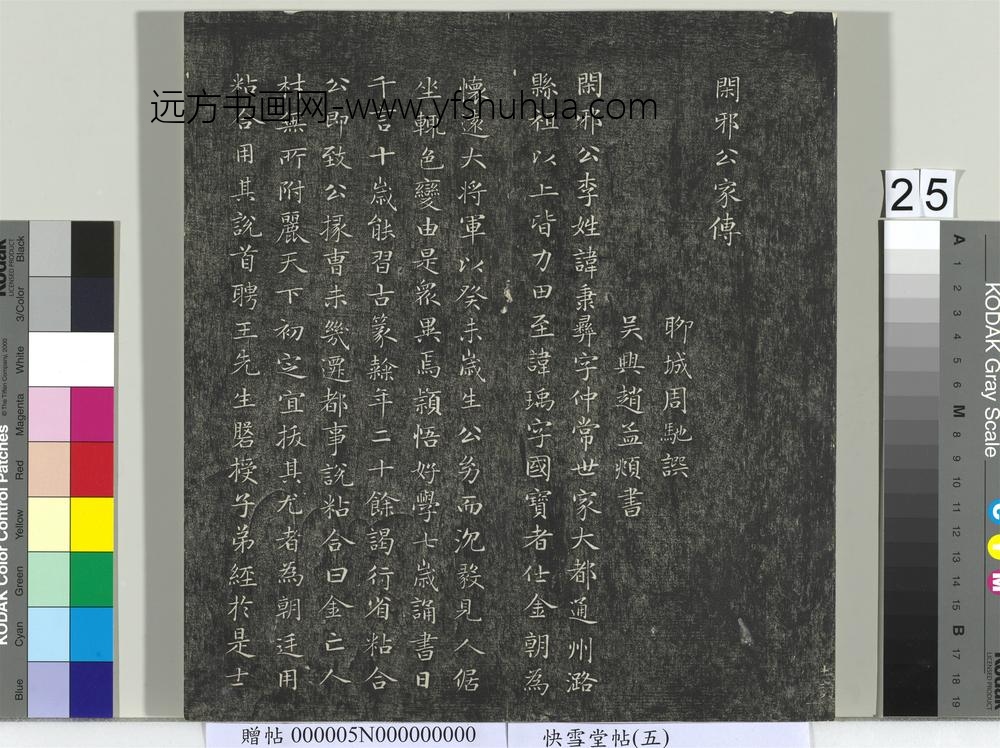 閑邪公家傳
聊城周馳譔
吴興趙孟頫書
閑邪公李姓諱秉彝字仲常世家大都通州潞
縣祖以上皆力田至諱瑀字國寶者仕金朝為
懷遠大將軍以癸未歲生公㓜而沉毅見人倨
坐輒色變由是眾異焉穎悟好學七歲誦書日
千言十歲能習古篆隸年二十餘謁行省粘合
公即致公掾曹未幾遷都事說粘合曰金亡人
材無所附麗天下初定宜拔其尤者為朝廷用
粘合用其說首聘王先生磐授子弟經於是士
远方书画网-www.yfshuhua.com
25
赠帖 000005N000000000
快雪堂帖(五)
KODAK Color Control Patches
© The Tiffen Company, 2000
Kodak
LICENSED PRODUCT
Blue
Cyan
Green
Yellow
Red
Magenta
White
3/Color
Black
KODAK Gray Scale
C
Y
M
Kodak
LICENSED PRODUCT
A 1 2 3 4 5 6 M 8 9 10 11 12 13 14 15 B 17 18 19